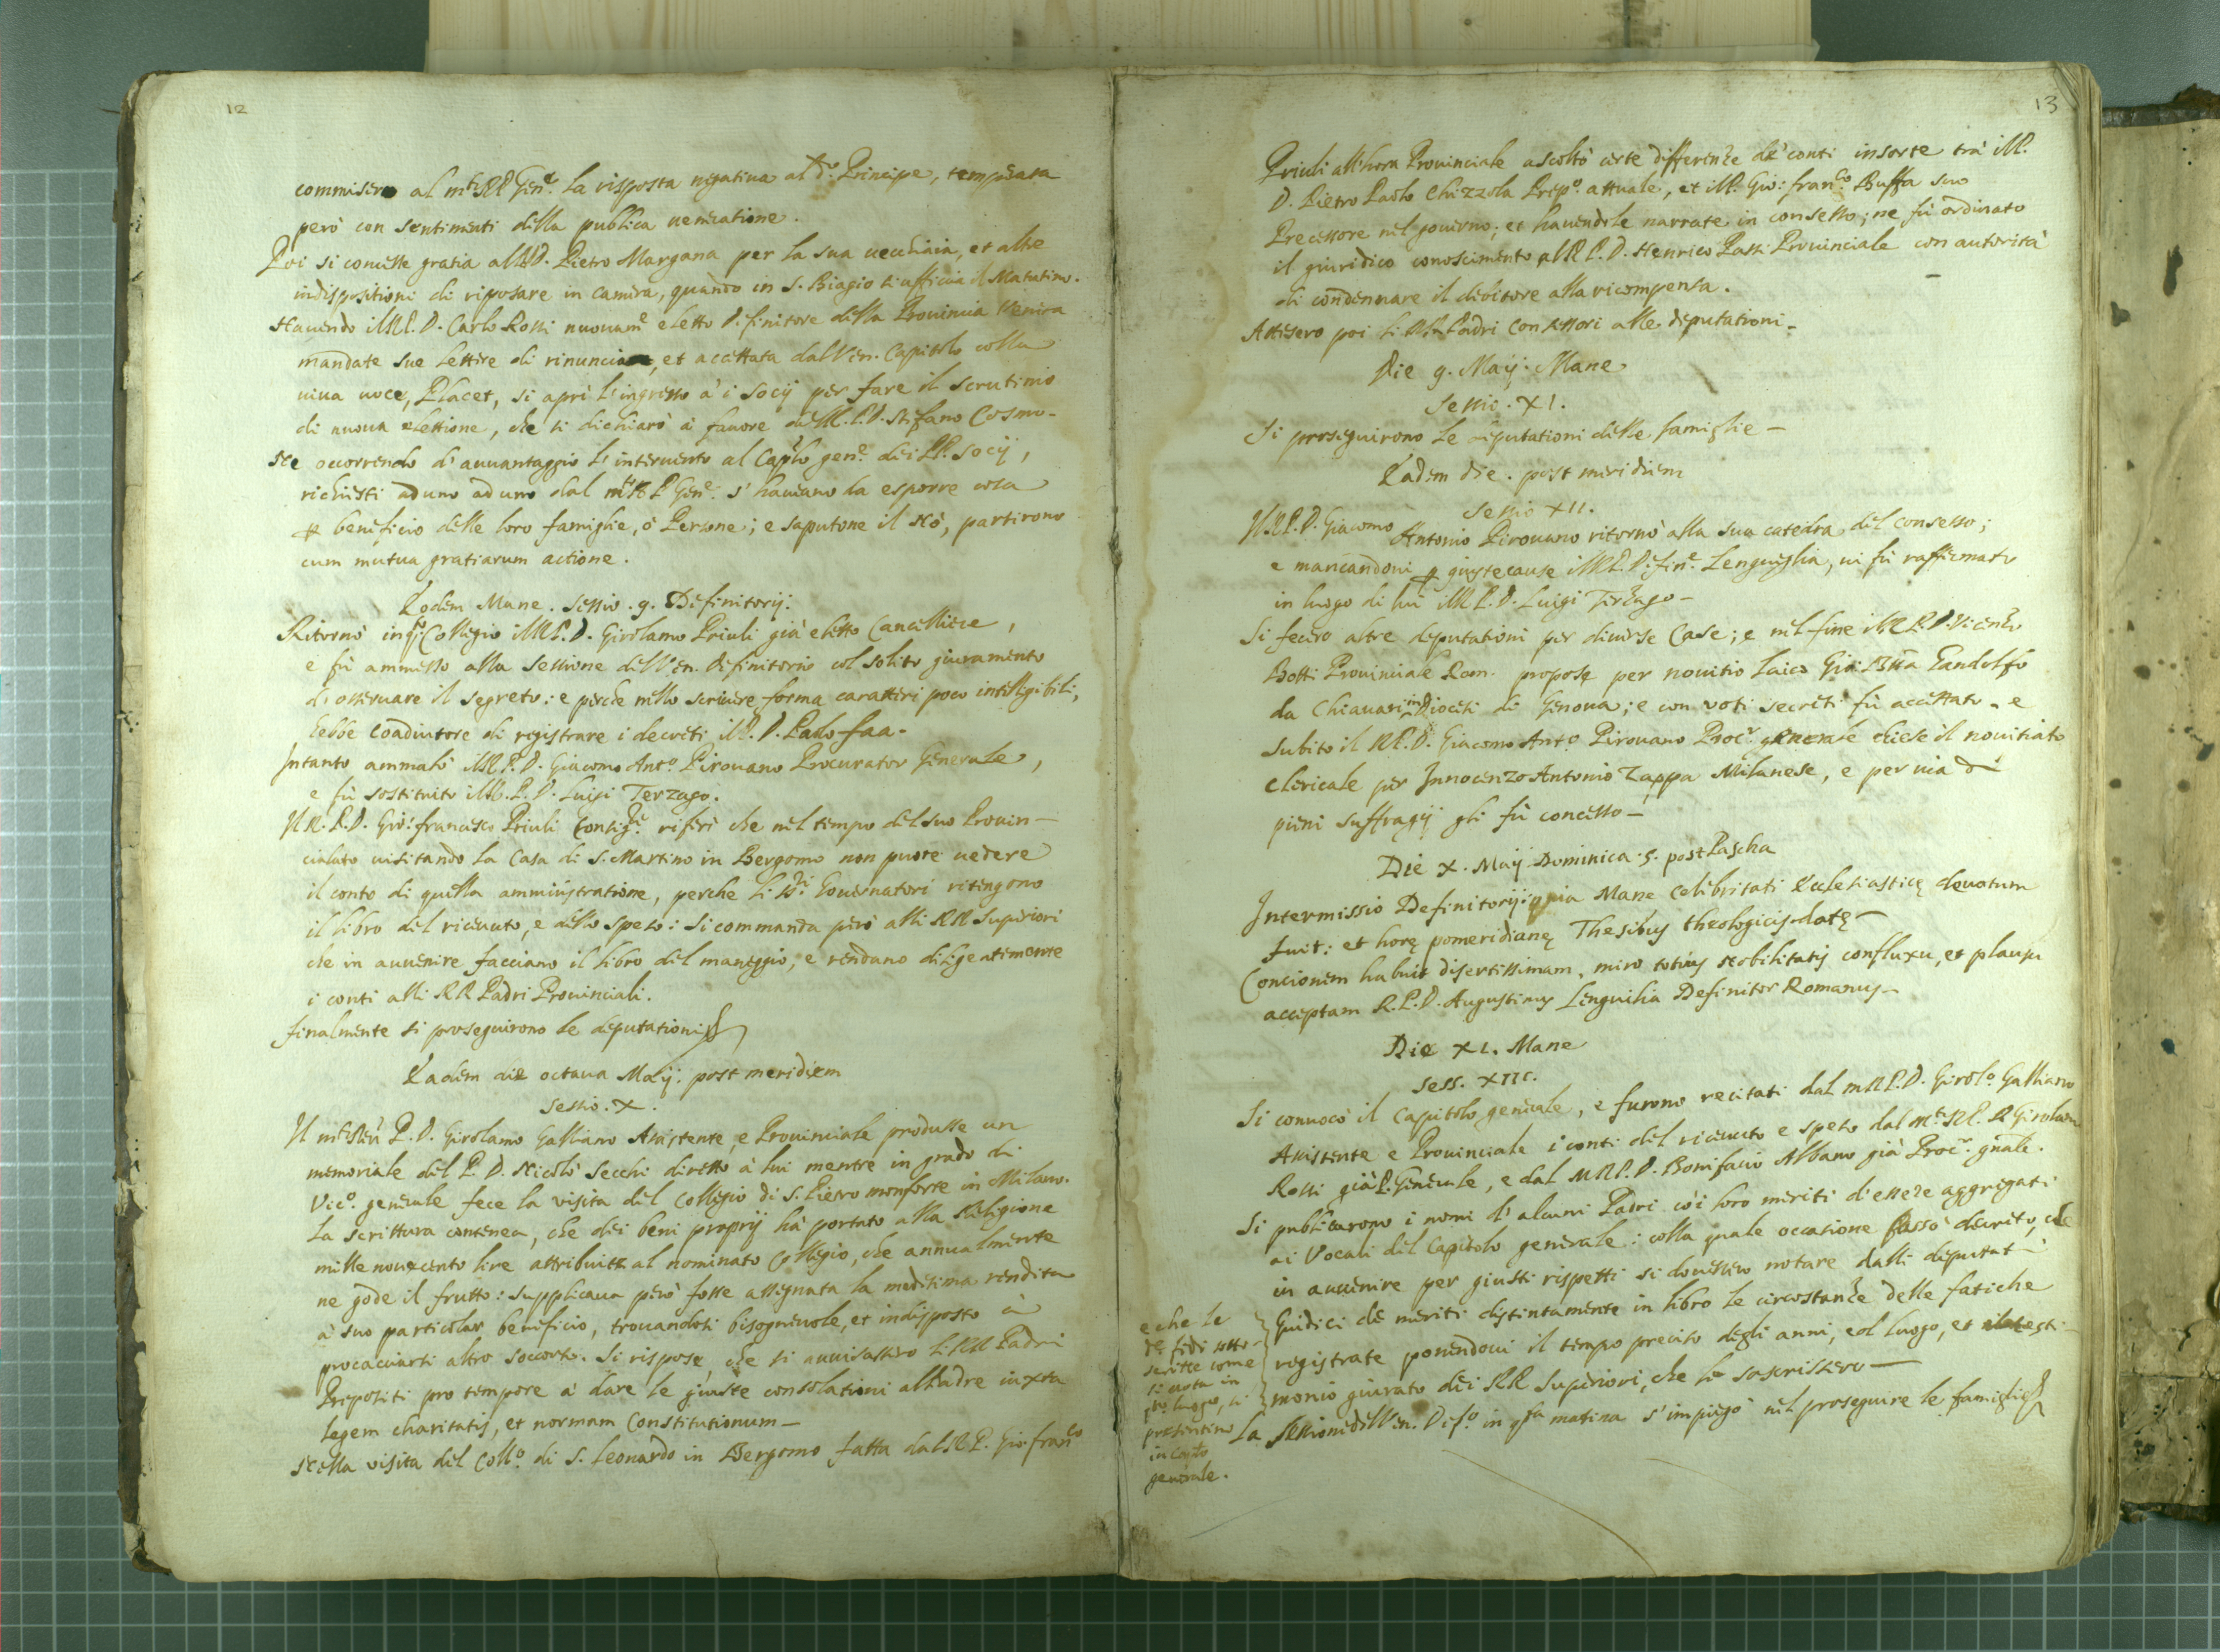 12
commisero al m.to R.P. Gen.e la risposta negativa al d.o Principe, temperata
però con sentimenti della publica veneratione.
Poi si concesse gratia al P.D. Pietro Margana per la sua vecchiaia, et altre
indispositioni di riposare in camera, quando in S. Biagio si ufficia il Matutino.
Havendo il M.R.P.D. Carlo Rossi nuovam.e eletto Definitore della Provincia Veneta
mandate sue lettere di rinuncia, et accettata dal Ven. Capitolo colla
viva voce, Placet, si aprì l'ingresso à i Socij per fare il scrutinio
di nuova elettione, che si dichiarò à favore del M.R.P.D. Stefano Cosmo.
Ne occorrendo d'avvantaggio l'intervento al Cap.lo gen.e dei PP. Socij,
richiesti ad uno ad uno dal m.to R.P. Gen.e s'havevano da esporre cosa
p beneficio delle loro famiglie, ò Persone; e saputone il nò, partirono
cum mutua gratiarum actione.
Eodem Mane. Sessio. 9. Definitorij.
Ritornò in q.o Collegio il M.R.P.D. Girolamo Priuli già eletto Cancelliere,
e fù ammesso alla sessione del Ven. Definitorio col solito giuramento
d'osservare il segreto: e perche nello scrivere forma caratteri poco intelligibili,
hebbe Coadiutore di registrare i decreti il P.D. Paolo Faa.
Intanto ammalò il M.R.P.D. Giacomo Ant.o Pirovano Procurator Generale,
e fù sostituito il M.R.P.D. Luigi Terzago.
Il R.P.D. Gio: Francesco Priuli Consig.re riferì che nel tempo del suo Provin-
cialato visitando la Casa di S. Martino in Bergomo non puote vedere
il conto di quella amministratione, perche li SS.ri Governatori ritengono
il libro del ricevuto, e dello speso: Si commanda però alli RR Superiori
che in avvenire facciano il libro del maneggio, e rendano diligentemente
i conti alli RR Padri Provinciali.
Finalmente si proseguirono le deputationi
Eadem die octava Maij: post meridiem
Sessio. X.
Il m.to Rev. P.D. Girolamo Galliano Assistente, e Provinciale produsse un
memoriale del P.D. Nicolò Secchi diretto à lui mentre in grado di
Vic.o generale fece la visita del Collegio di S. Pietro monforte in Milano.
La scrittura contenea, che dei beni proprij hà portato alla Religione
mille novecento lire attribuite al nominato Collegio, che annualmente
ne gode il frutto: supplicava però fosse assegnata la medesima rendita
à suo particolar beneficio, trovandosi bisognevole, et indisposto à
procacciarsi altro soccorso. Si rispose, che si avvisassero li RR Padri
Prepositi pro tempore à dare le giuste consolationi al Padre iuxta
legem charitatis, et normam Constitutionum—
Nella visita del Coll.o di S. Leonardo in Bergomo fatta dal R.P. Gio: Fran.co
13
Priuli all'hora Provinciale ascoltò certe differenze de' conti insorte trà il P.
D. Pietro Paolo Chizzola Prep.o attuale, et il P. Gio: Fran.co Buffa suo
Precessore nel governo; et havendole narrate in consesso; ne fù ordinato
il giuridico conoscimento al R.P.D. Henrico Passi Provinciale con autorità
di condennare il debitore alla ricompensa.
Attesero poi li RR Padri Consessori alle deputationi.
Die 9. Maij. Mane
Sessio. XI.
Si proseguirono le deputationi delle famiglie—
Eadem die. post meridiem
Sessio XII.
Il R.P.D. Giacomo Antonio Pirovano ritornò alla sua catedra del consesso;
e mancandovi p giuste cause il R.P. Difin.e Lengueglia, vi fù raffermato
in luogo di lui il M.R.P.D. Luigi Terzago—
Si fecero altre deputationi per diverse Case; e nel fine il R.P.D. Vicenzo
Botti Provinciale Rom. propose per novitio laico Gio: Btta Gandolfo
da Chiavari in Diocesi di Genova; e con voti secreti fù accettato. e
subito il R.P.D. Giacomo Ant.o Pirovano Proc.r generale chiese il novitiato
Clericale per Innocenzo Antonio Zappa Milanese, e per via di
pieni suffragij gli fù concesso—
Die X. Maij Dominica. 5. post Pascha
Intermissio Definitorij: quia Mane Celebritati Ecclesiasticę devotum
fuit: et horę pomeridianę Thesibus theologicis datę—
Concionem habuit disertissimam, miro totius Nobilitatis confluxu, et plausu
acceptam R.P.D. Augustinus Lenguilia Definitor Romanus—
Die XI. Mane
Sess. XIII.
Si convocò il Capitolo generale, e furono recitati dal m R.P.D. Girol.o Galliano
Assistente e Provinciale i conti del ricevuto e speso dal m.to R.P.D. Girolamo
Rossi già P. Generale, e dal M.R.P.D. Bonifacio Albano già Proc.r gnale.
Si publicarono i nomi d'alcuni Padri coi loro meriti d'essere aggregati
ai Vocali del Capitolo generale: colla quale occasione passò decreto, che
in avvenire per giusti rispetti si dovessero notare dalli deputati
Guidici de meriti distintamente in libro le circostanze delle fatiche
registrate ponendovi il tempo preciso degli anni, e'l luogo, et il testi-
monio giurato dei RR Superiori, che lo soscrissero—
La Sessione del Ven. Def.o in q.sta matina s'impiegò nel proseguire le famiglie
e che le
de fedi sotto-
scritte come
si nota in
q.o luogo, si
presentino
in Cap.lo
generale.